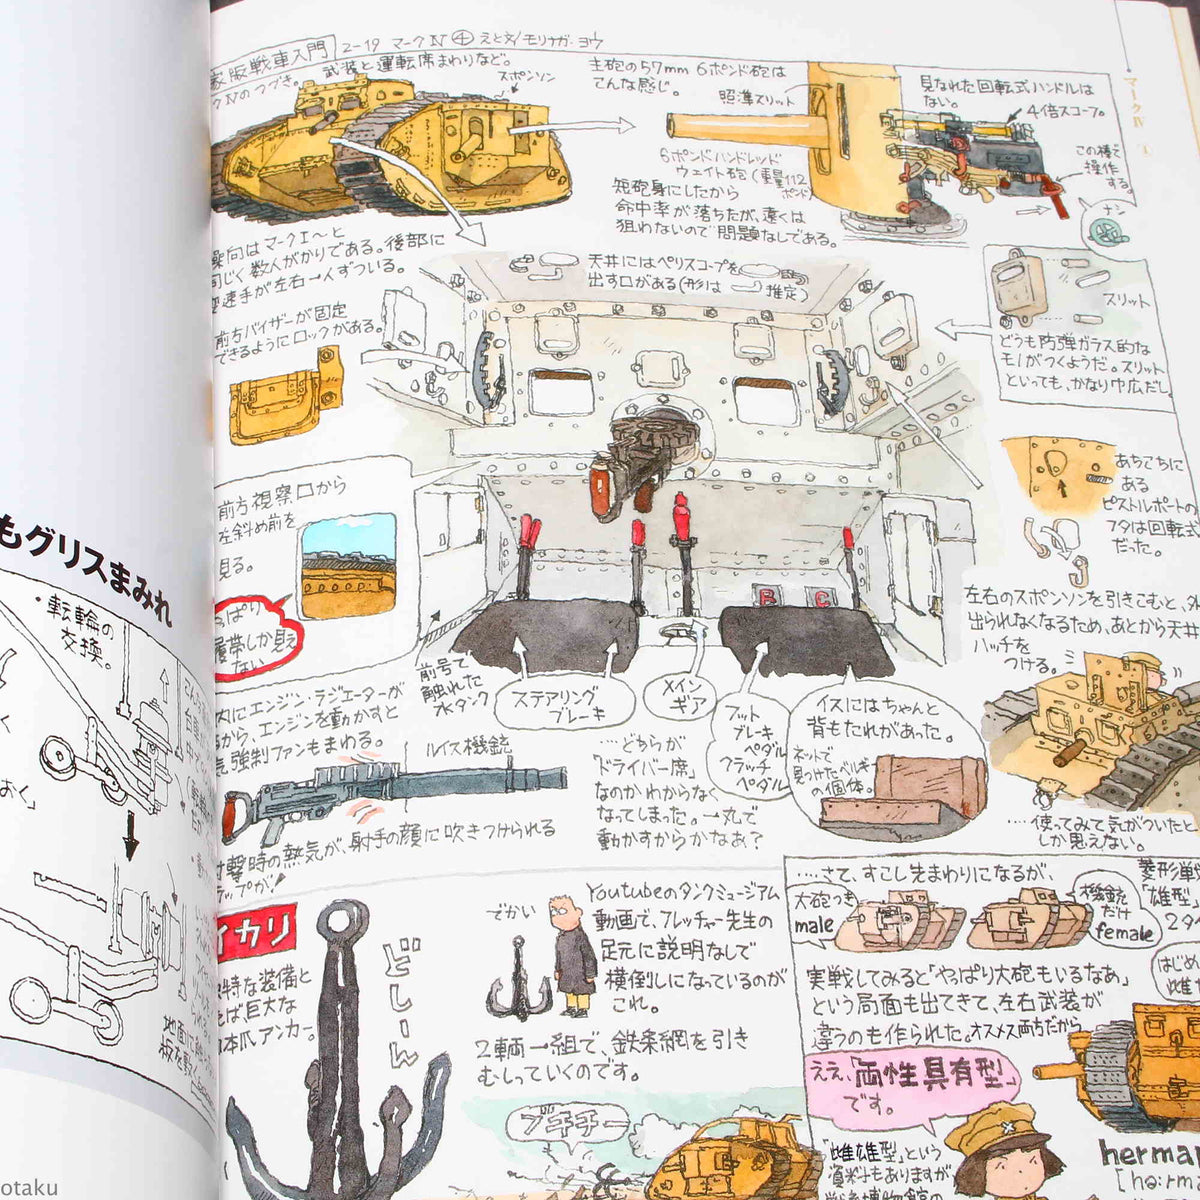 家版戦車入門 2-19 マークⅣ④ えと文/モリナガ・ヨウ
クⅣのつづき。
武装と運転席まわりなど。
スポンソン
主砲の57mm 6ポンド砲は
こんな感じ。
照準スリット
見なれた回転式ハンドルは
ない。
4倍スコープ。
この棒で
操作
する。
ナン
6ポンドハンドレッド
ウェイト砲(重量112
ポンド)
短砲身にしたから
命中率が落ちたが、遠くは
狙わないので問題なしである。
操向はマークⅠ〜と
同じく数人がかりである。後部に
変速手が左右一人ずついる。
前方バイザーが固定
できるようにロックがある。
天井にはペリスコープを
出す口がある(形は推定)
スリット
どうも防弾ガラス的な
モノがつくようだ。スリット
といっても、かなり巾広だし
あちこちに
ある
ピストルポートの
フタは回転式
だった。
前方視察口から
左斜め前を
見る。
っぱり
履帯しか見え
ない
左右のスポンソンを引きこむと、外
出られなくなるため、あとから天井
ハッチを
つける。
前号で
触れた
水タンク
ステアリング
ブレーキ
メイン
ギア
フット
ブレーキ
ペダル
クラッチ
ペダル
B C
イスにはちゃんと
背もたれがあった。
ネットで
見つけたベルギー
の個体。
…どちらが
「ドライバー席」
なのかわからなく
なってしまった。→丸で
動かすからかなあ?
…使ってみて気がついたと
しか思えない。
内にエンジン・ラジエーターが
るから、エンジンを動かすと
気強制ファンもまわる。
ルイス機銃
射撃時の熱気が、射手の顔に吹きつけられる
ップが!
イカリ
独特な装備と
えば、巨大な
本爪アンカー。
どしぃん
でかい
Youtubeのタンクミュージアム
動画で、フレッチャー先生の
足元に説明なしで
横倒しになっているのが
これ。
2輌一組で、鉄条網を引き
むしっていくのです。
ブチチー
……さて、すこし先まわりになるが、
大砲つき
male
機銃
だけ
female
菱形戦
「雄型」
2タ
はじめ
雌
実戦してみると「やっぱり大砲もいるなあ」
という局面も出てきて、左右武装が
違うのも作られた。オスメス両方だから
ええ、「両性具有型」
です。
「雌雄型」という
資料もありますが
hermap
[hə:rm
マークⅣ
もグリスまみれ
・転輪の
交換。
おく」
地面に
板を敷く
otaku